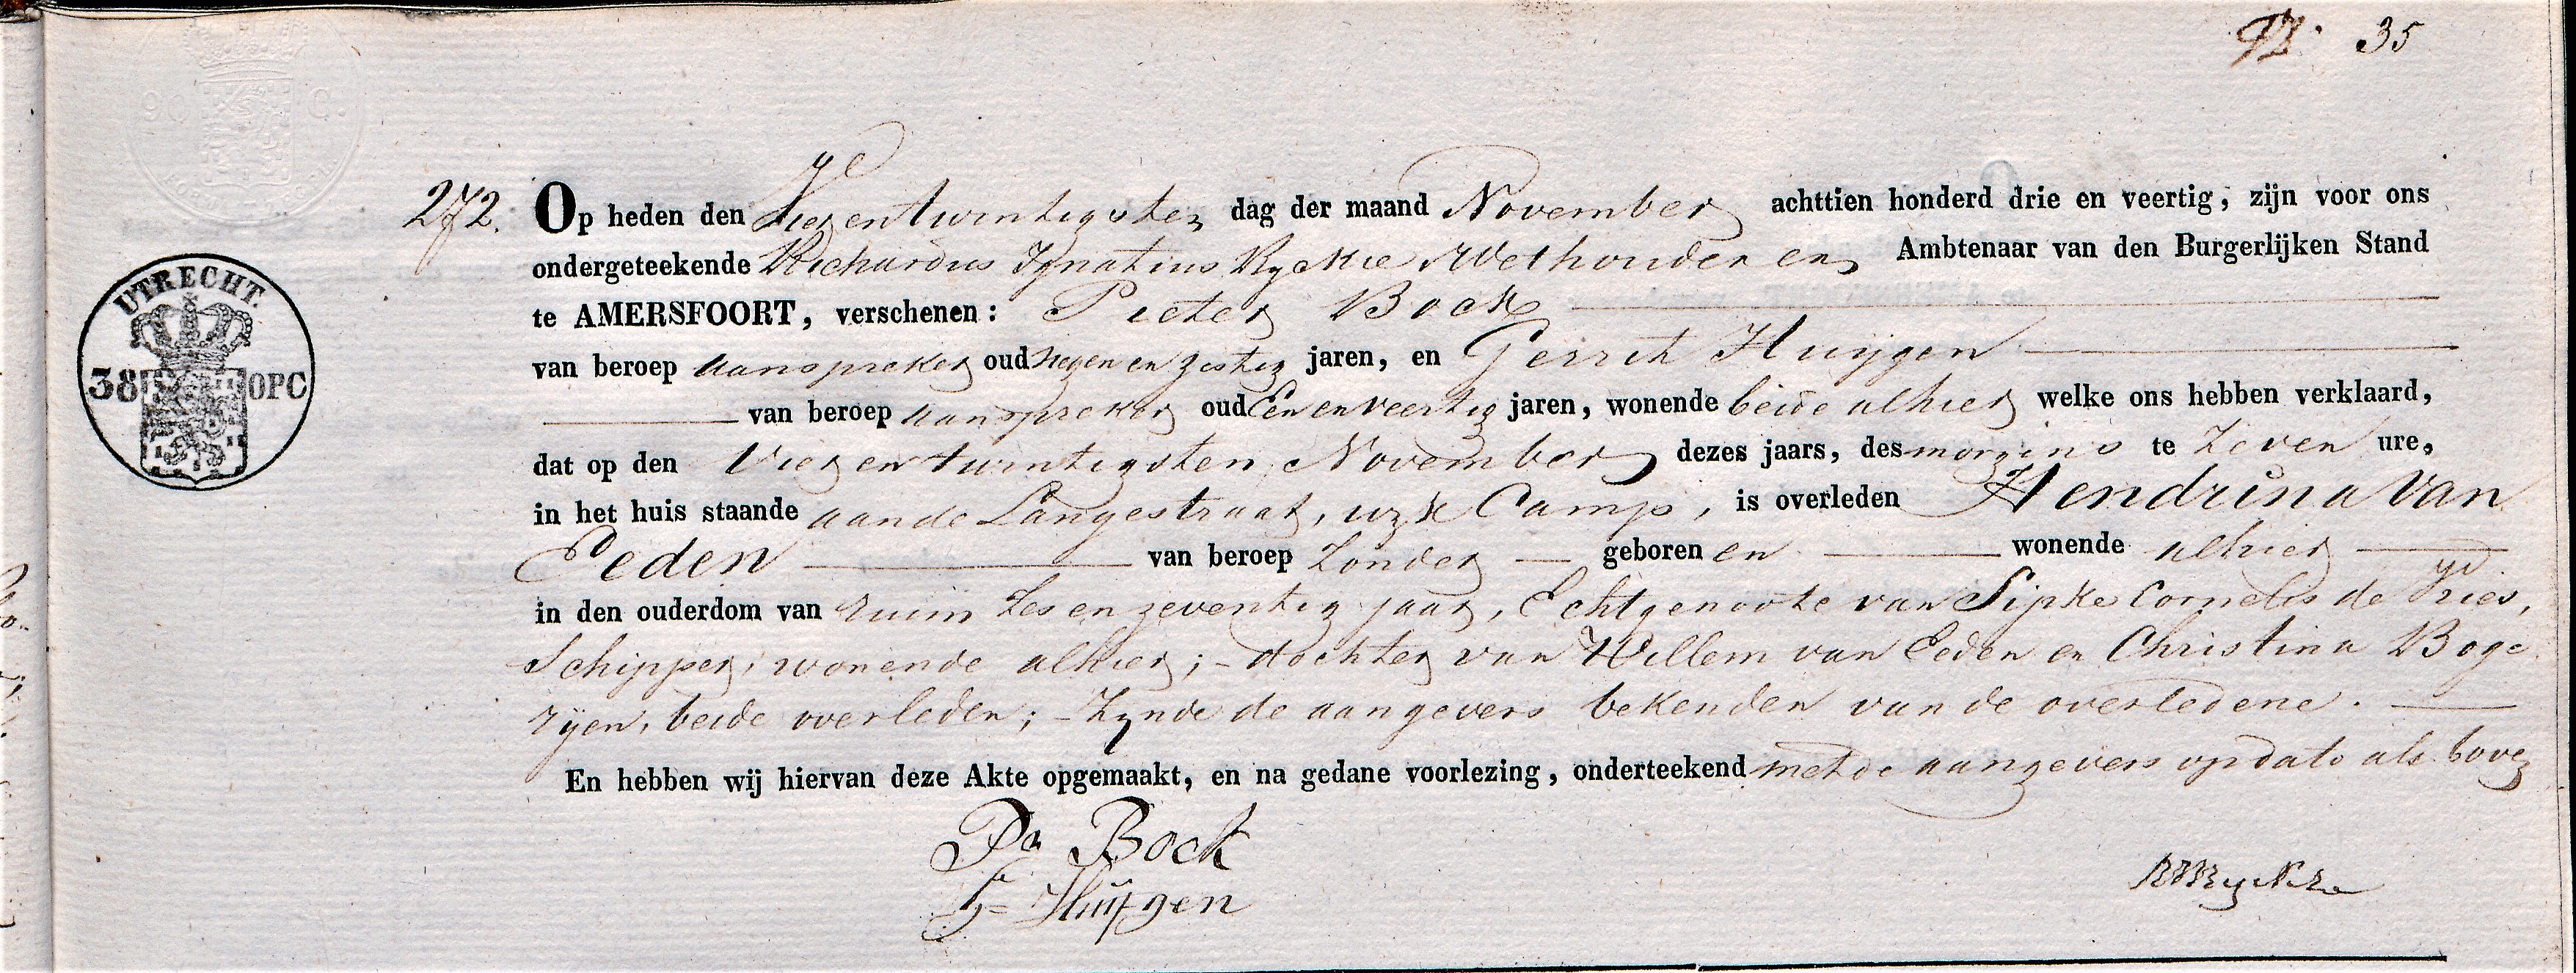 35
90 C.
272. Op heden den Vier en twintigsten dag der maand November achttien honderd drie en veertig, zijn voor ons
ondergeteekende Richardus Ignatius Ryckie Wethouder en Ambtenaar van den Burgerlijken Stand
te AMERSFOORT, verschenen: Pieter Bock
van beroep aanspreker oud negen en zestig jaren, en Gerrit Huijgen
van beroep aanspreker oud Een en veertig jaren, wonende beide alhier welke ons hebben verklaard,
dat op den Vier en twintigsten November dezes jaars, des morgens te Zeven ure,
in het huis staande aan de Langestraat, wyk Camp, is overleden Hendrina Van
Eeden van beroep Zonder geboren en wonende alhier
in den ouderdom van ruim Zes en zeventig jaar, Echtgenoote van Sipke Cornelis de Vries,
Schipper, wonende alhier; - dochter van Willem van Eeden en Christina Boge
rijen, beide overleden; - Zynde de aangevers bekenden van de overledene.
En hebben wij hiervan deze Akte opgemaakt, en na gedane voorlezing, onderteekend met de aangevers op dato als boven
UTRECHT.
38 OPC
Pr Bock
G= Huijgen
RIRyckie